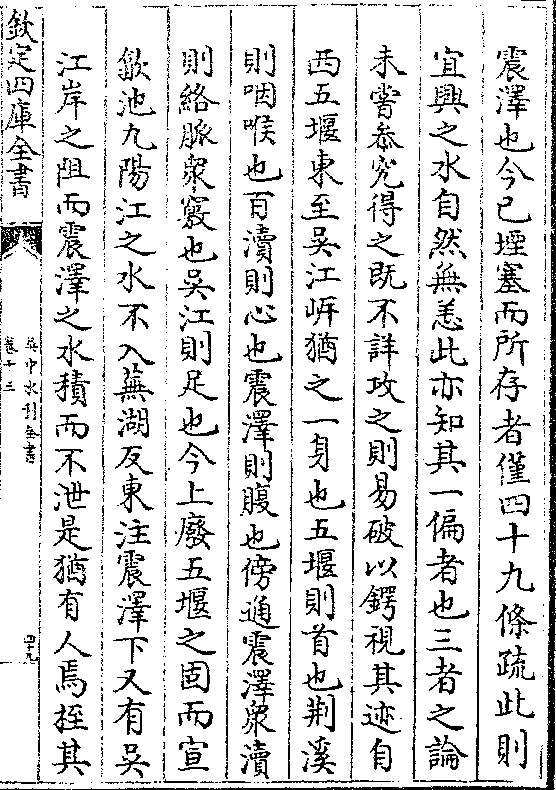 震澤也今已堙塞而所存者僅四十九條疏此則
宜興之水自然無恙此亦知其一偏者也三者之論
未嘗叅究得之既不詳攻之則易破以鍔視其迹自
西五堰東至吳江岍猶之一身也五堰則首也荆溪
則咽喉也百瀆則心也震澤則腹也傍通震澤衆瀆
則絡脈衆竅也吳江則足也今上廢五堰之固而宣
歙池九陽江之水不入蕪湖反東注震澤下又有吳
江岸之阻而震澤之水積而不泄是猶有人焉桎其
欽定四庫全書
吳中水利全書
卷十三
四十九